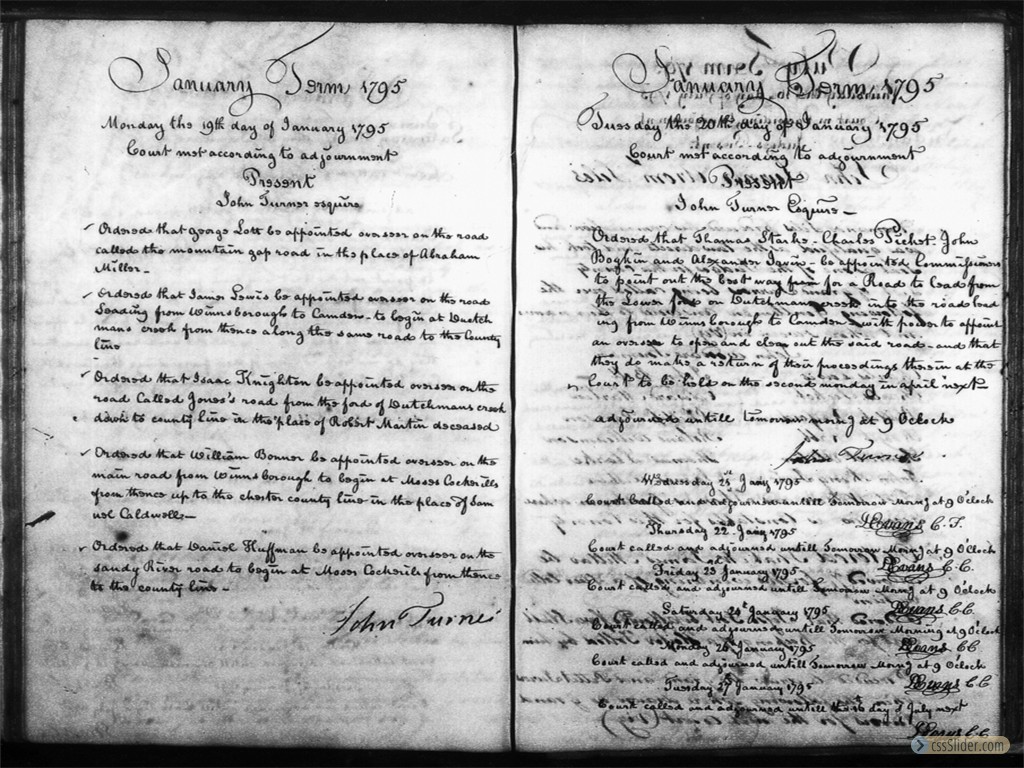 January Term 1795
Monday the 19th day of January 1795
Court met according to adjournment
Present
John Turner esquire
Ordered that George Lott be appointed overseer on the road
called the mountain gap road in the place of Abraham
Miller-
Ordered that James Lewis be appointed overseer on the road
Leading from Winnsborough to Camden- to begin at Dutch
mans creek from thence along the same road to the County
line
Ordered that Isaac Knighton be appointed overseer on the
road Called Jones's road from the ford of Dutchmans creek
down to county Line in the place of Robert Martin deceased
Ordered that William Bonner be appointed overseer on the
main road from Winnsborough to begin at Moses Cockerills
from thence up to the chester county line in the place of Sam
uel Caldwell-
Ordered that Daniel Huffman be appointed overseer on the
sandy River road to begin at Moses Cockerils from thence
to the county line-
John Turner
January Term 1795
Tuesday the 20th day of January 1795
Court met according to adjournment
Present
John Turner Esquire-
Ordered that Thomas Starke- Charles Picket John
and Alexander Irwin- be appointed Commissioners
to point out the best way for a Road to Lead from
the Lower on Dutchmans creek into the road lead
ing from Winnsborough to Camden- with power to appoint
an overseer to open and clear out the said road- and that
they do make a return of their proceedings therein at the
Court to be held on the second monday in april next-
adjourned untill tomorrow morng at 9 Oclock
John Turner
Wednesday 21st Jany 1795
Court Called and adjourned untill Tomorrow Morng at 9 O'Clock
Evans C. F.
Thursday 22d Jany 1795
Court called and adjourned untill Tomorrow Morng at 9 O'Clock
Evans C. C.
Friday 23 January 1795
Court called and adjourned untill Tomorrow Morng at 9 O'Clock
Evans C. C.
Saturday 24th January 1795
Court called and adjourned untill Tomorrow Morning at 9 O'Clock
Evans CC
Monday 26 January 1795
Court called and adjourned untill Tomorrow Morng at 9 O'Clock
Evans C C
Tuesday 27 January 1795
Court called and adjourned untill the 16 day of July next
Evans C. C.
cssSlider.com